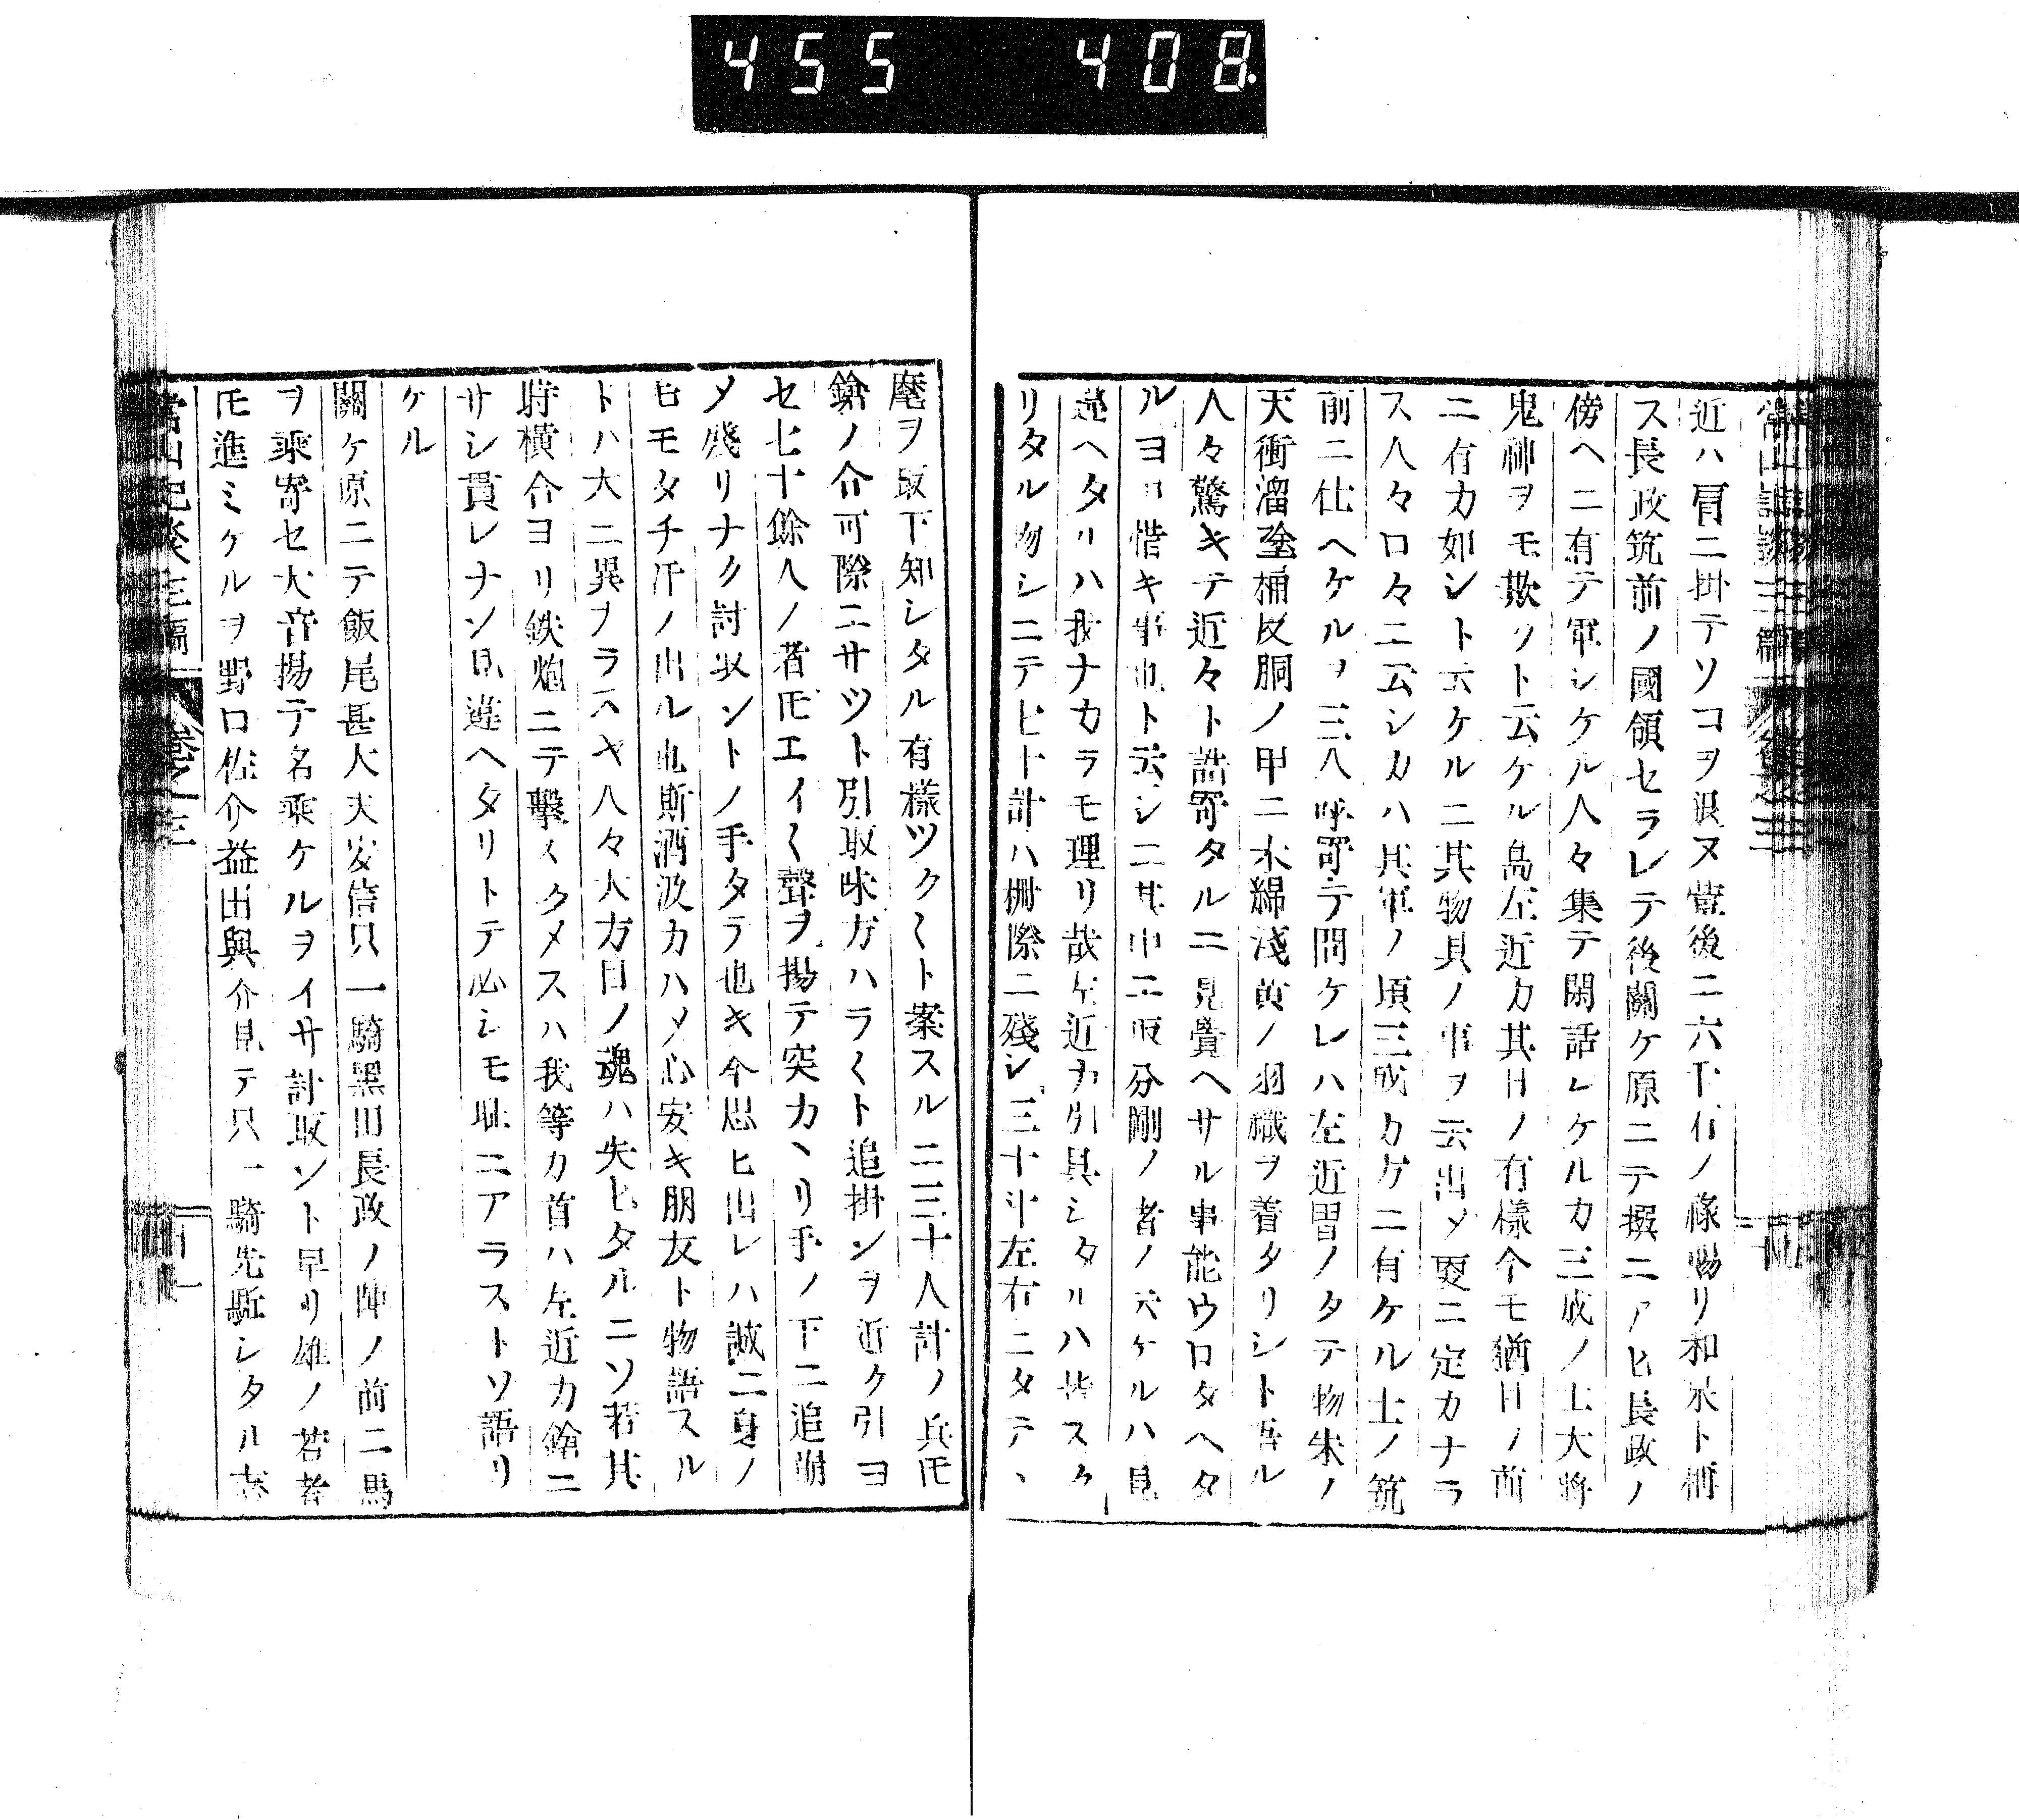 455 408
近ハ肩ニ掛テソコヲ退ヌ豊後ニ六千石ノ祿賜リ和泉ト稱
ス長政筑前ノ國領セラレテ後關ケ原ニテ撰ニアヒ長政ノ
傍ヘニ有テ軍シケル人々集テ閑話レケルカ三成ノ士大將
鬼神ヲモ欺クト云ケル島左近カ其日ノ有樣今モ猶目ノ前
ニ有カ如シト云ケルニ其物具ノ事ヲ云出〆更ニ定カナラ
ス人々口々ニ云シカハ其軍ノ頃三成カケニ有ケル士ノ筑
前ニ仕ヘケルヲ三人呼寄テ問ケレハ左近冑ノタテ物朱ノ
天衝溜塗桶皮胴ノ甲ニ木綿淺黄ノ羽織ヲ着タリシト語ル
人々驚キテ近々ト詰寄タルニ見覺ヘサル事能ウロタヘタ
ルヨロ惜キ事也ト云シニ其中ニ取分剛ノ者ノ云ケルハ見
違ヘタルハ我ナカラモ理リ哉左近カ引具シタルハ皆スク
リタル物シニテ七十計ハ柵際ニ殘シ三十斗左右ニタテヽ
麾ヲ取下知シタル有樣ツク〱ト案スルニ二三十人計ノ兵𪜈
鎗ノ合可際ニサツト引取味方ハラ〱ト追掛ンヲ近ク引ヨ
セ七十餘人ノ者𪜈エイ〱聲ヲ揚テ突カヽリ手ノ下ニ追崩
〆殘リナク討取ントノ手タラ也キ今思ヒ出レハ誠ニ身ノ
ヒモタチ汗ノ出ル也斯酒汲カハ〆心安キ朋友ト物語スル
トハ大ニ異ヲラスヤ人々大方目ノ魂ハ失ヒタルニソ若其
時横合ヨリ鉄炮ニテ擊スクメスハ我等カ首ハ左近カ鎗ニ
サシ貫レナン見違ヘタリトテ必シモ耻ニアラストソ語リ
ケル
關ケ原ニテ飯尾甚大夫安信只一騎黑田長政ノ陣ノ前ニ馬
ヲ乘寄セ大音揚テ名乘ケルヲイサ討取ント早リ雄ノ若者
𪜈進ミケルヲ野口佐介益田與介見テ只一騎先駈シタル志
常山紀談三編 卷之三